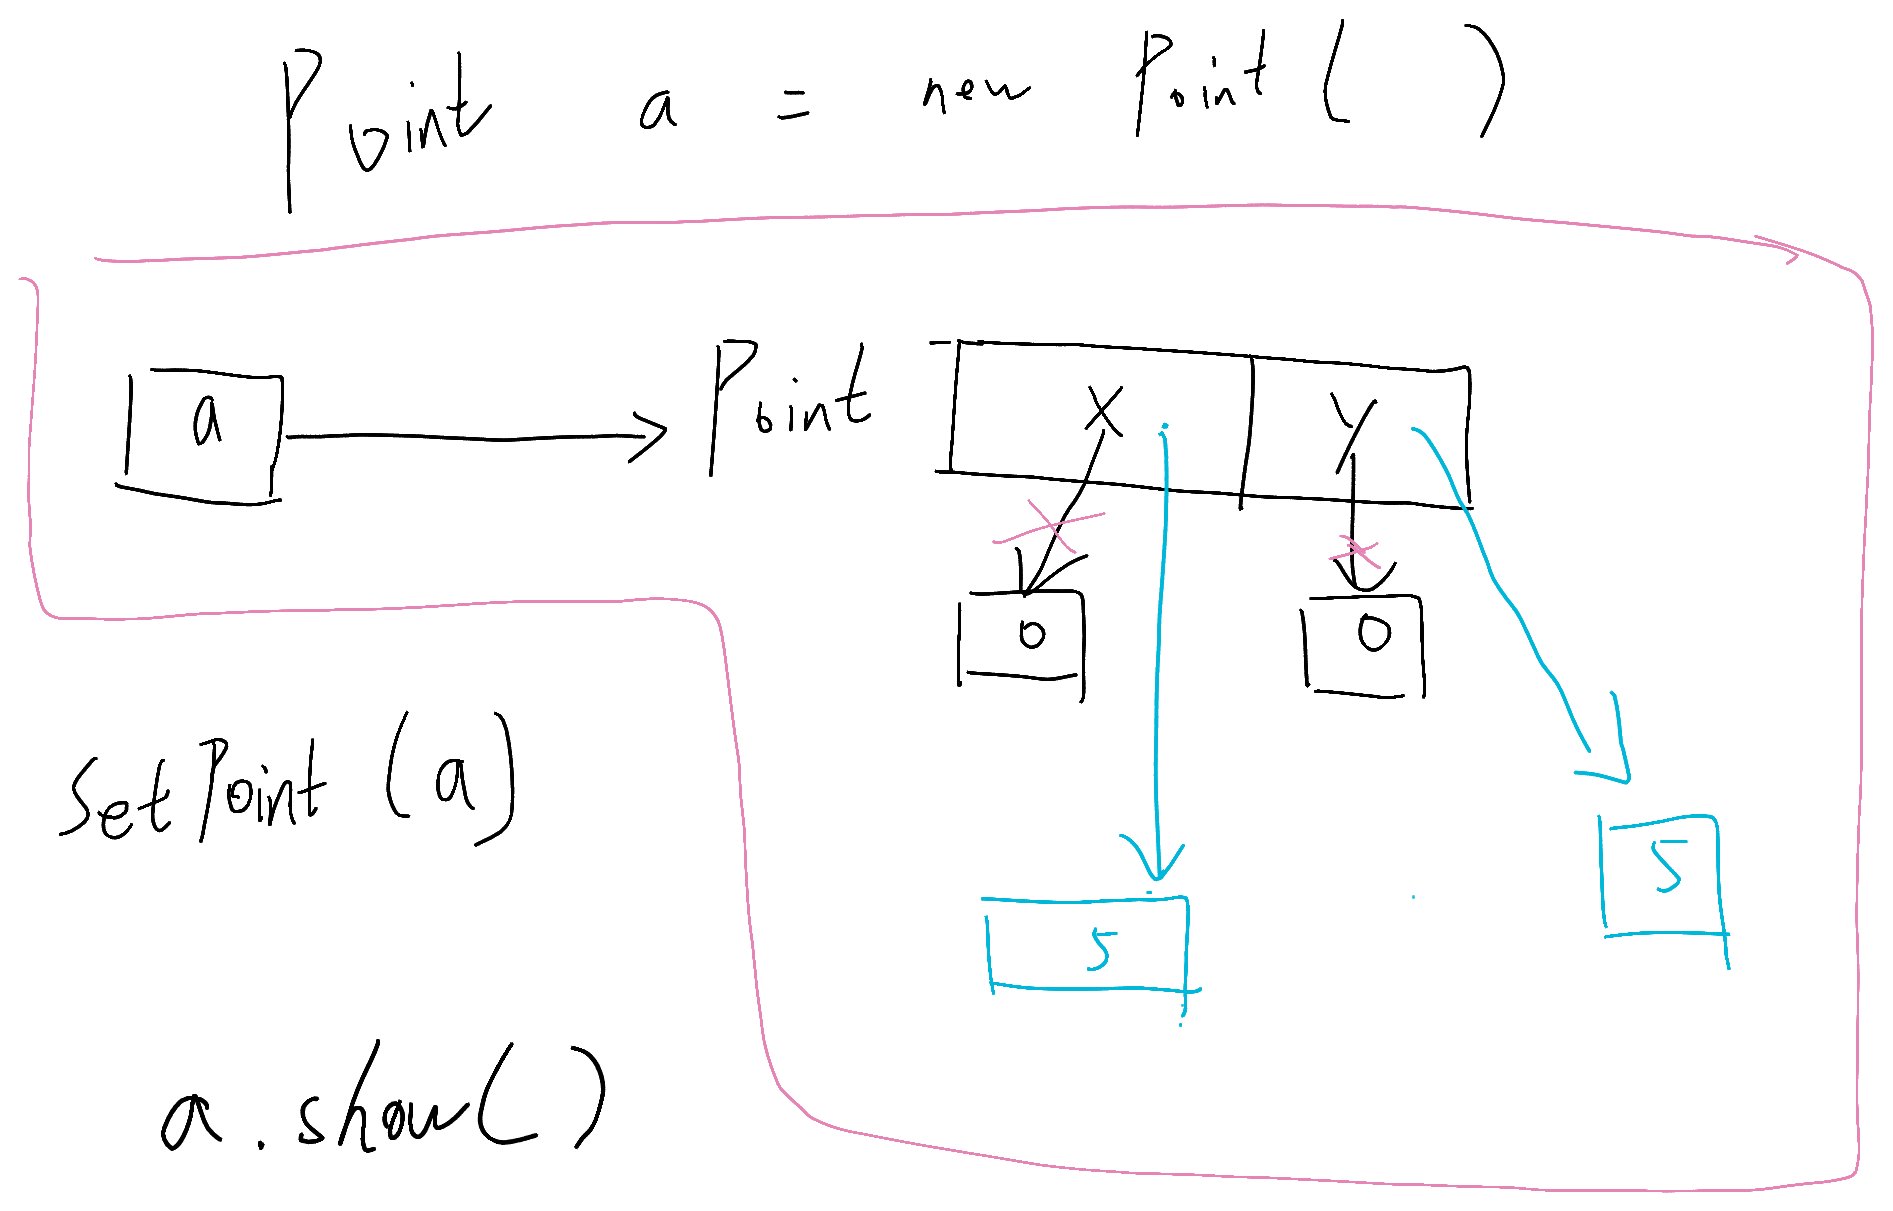 Point a = new Point( )
a Point X Y
0 0
SetPoint (a)
5
5
a.show()